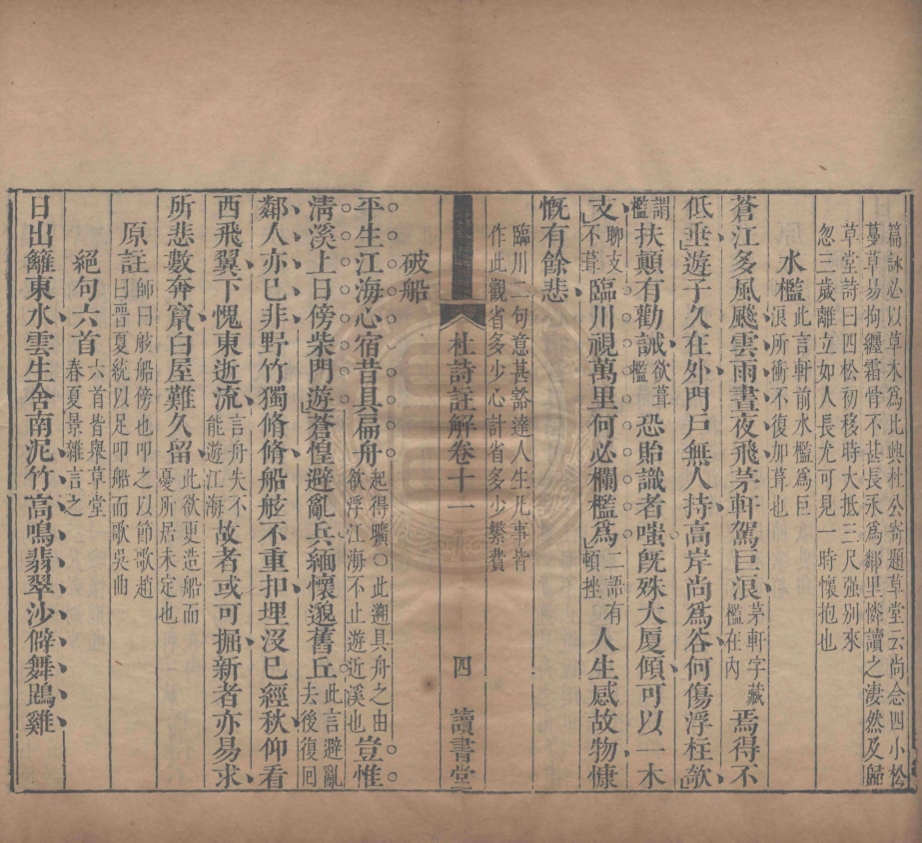 篇詠必以草木爲比興杜公寄題草堂云尚念四小松
蔓草易拘纒霜骨不甚長永爲鄰里憐讀之凄然及歸
草堂詩曰四松初移時大抵三尺强别來
忽三歲離立如人長尤可見一時懷抱也
水檻此言軒前水檻爲巨浪所衝不復加葺也
蒼江多風飈雲雨晝夜飛茅軒駕巨浪茅軒字藏檻在內焉得不
低垂遊子久在外門戸無人持高岸尚爲谷何傷浮柱欹
謂檻扶顛有勸誡欲葺檻恐貽識者嗤旣殊大厦傾可以一木
支聊支不葺臨川視萬里何必欄檻爲二語有頓挫人生感故物慷
慨有餘悲
臨川二句意甚豁達人生凡事皆
作此觀省多少心計省多少繁費
杜詩註解卷十一 四 讀書堂
破船
平生江海心宿昔具扁舟起得曠○此遡具舟之由欲浮江海不止遊近溪也豈惟
淸溪上日傍柴門遊蒼惶避亂兵緬懷邈舊丘此言避亂去後復囘
鄰人亦已非野竹獨脩脩船舷不重扣埋沒已經秋仰看
西飛翼下愧東逝流言舟失不能遊江海故者或可掘新者亦易求
所悲數奔竄白屋難久留此欲更造船而憂所居未定也
原註師曰舷船傍也叩之以節歌趙曰晉夏統以足叩船而歌吳曲
絕句六首六首皆舉草堂春夏景雜言之
日出籬東水雲生舍南泥竹高鳴翡翠沙僻舞鵾雞